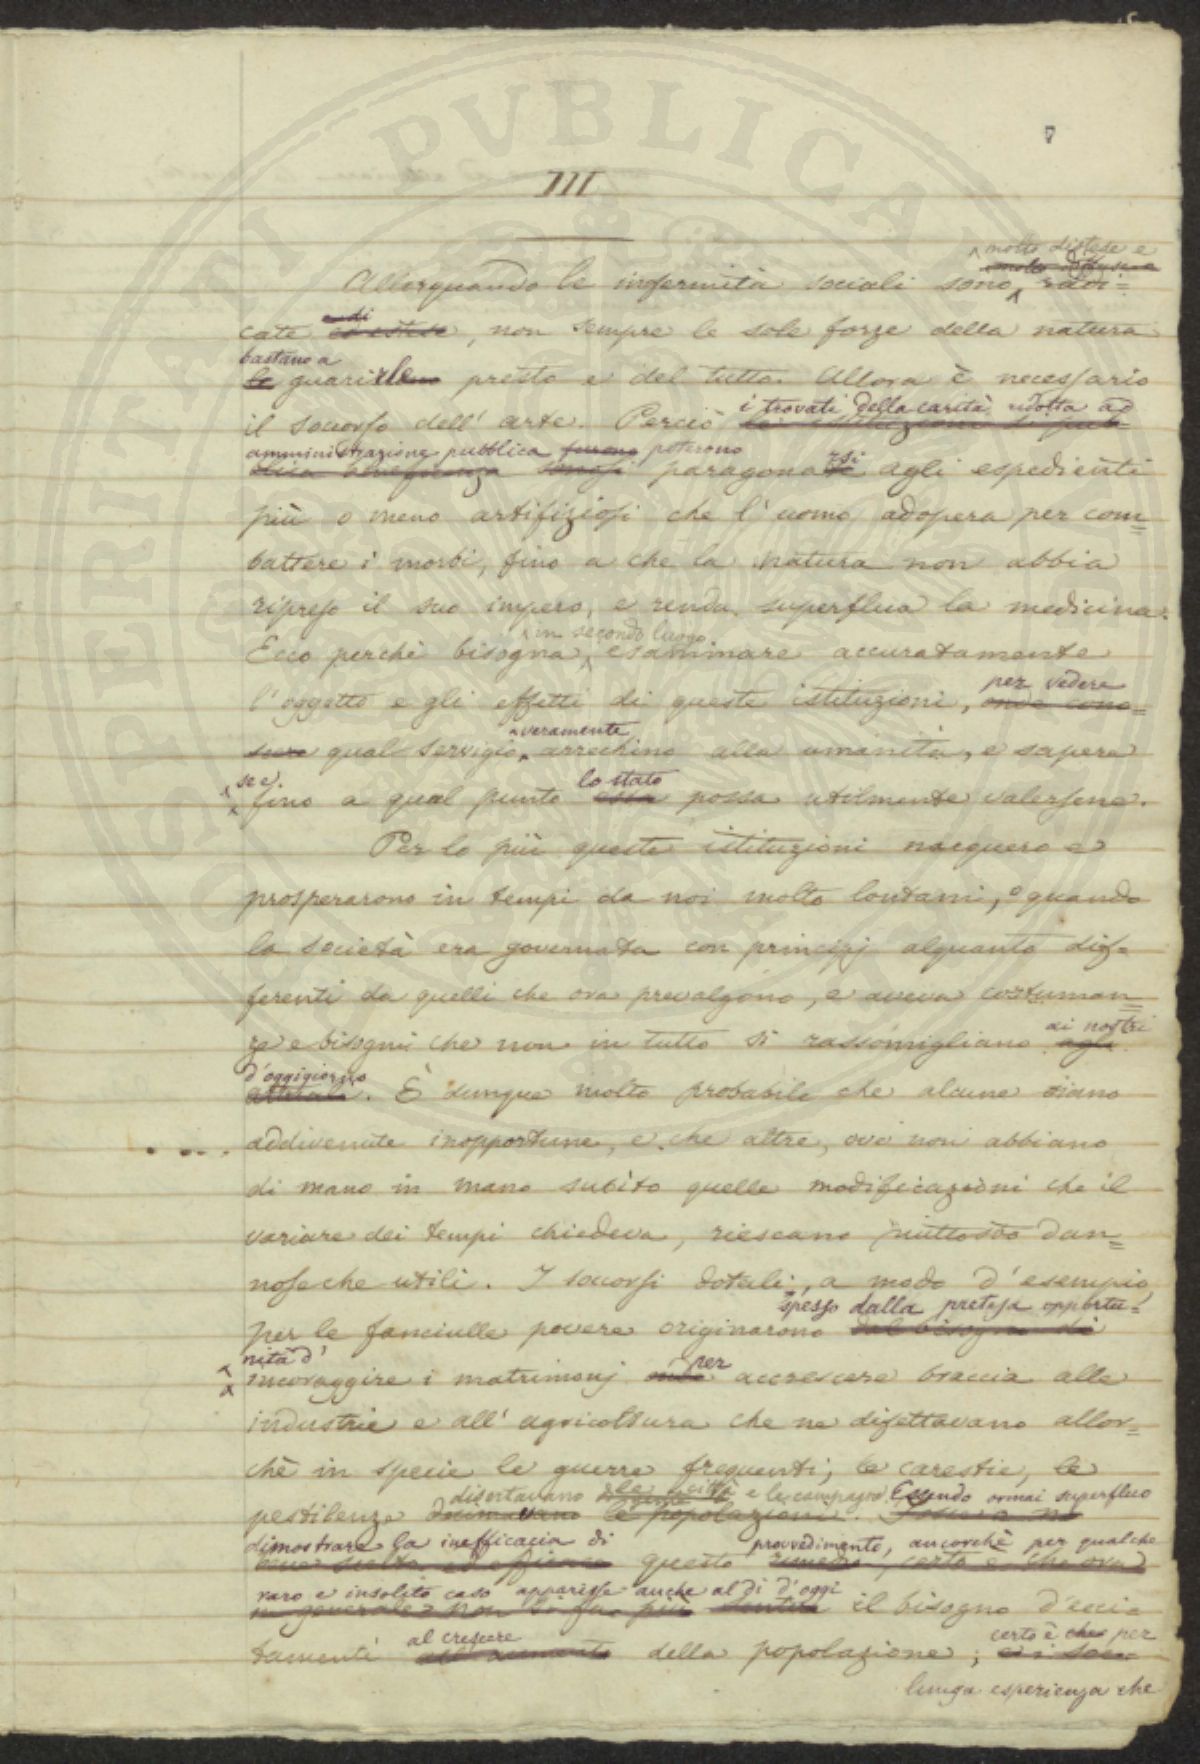 7
III
molto distese e
Allorquando le infermità sociali sono radi=
cate, non sempre le sole forze della natura
bastano a
guarirle presto e del tutto. Allora è necessario
i trovati della carità ridotta ad
il soccorso dell'arte. Perciò
amministrazione pubblica poterono
paragonarsi agli espedienti
più o meno artifiziosi che l'uomo adopera per com=
battere i morbi, fino a che la natura non abbia
ripreso il suo impero, e renda superflua la medicina.
in secondo luogo
Ecco perchè bisogna, esaminare accuratamente
l'oggetto e gli effetti di queste istituzioni,
per vedere
veramente
qual servigio arrechino alla umanità, e sapere
se e
lo stato
fino a qual punto possa utilmente valersene.
Per lo più queste istituzioni nacquero e
prosperarono in tempi da noi molto lontani, quando
la società era governata con principj alquanto dif=
ferenti da quelli che ora prevalgono, e aveva costuman=
ze e bisogni che non in tutto si rassomigliano agli
ai nostri
d'oggigiorno
attuali. È dunque molto probabile che alcune siano
addivenute inopportune, e che altre, ove non abbiano
di mano in mano subìto quelle modificazioni che il
variare dei tempi chiedeva, riescano piuttosto dan=
nose che utili. I soccorsi dotali, a modo d'esempio
spesso dalla pretesa opportu=
per le fanciulle povere originarono dal bisogno di
nità d'
incoraggire i matrimonj per accrescere braccia alle
industrie e all'agricoltura che ne difettavano allor=
chè in specie le guerre frequenti, le carestie, le
disertavano le città e le campagne. Essendo ormai superfluo
pestilenze decimavano le popolazioni.
dimostrare la inefficacia di
provvedimento, ancorchè per qualche
questo rimedio, certo è che ora
raro e insolito caso apparisse anche al dì d'oggi
in generale non si fa più sentire il bisogno d'ecci=
al crescere
certo è che per
tamenti all'aumento della popolazione;
lunga esperienza che